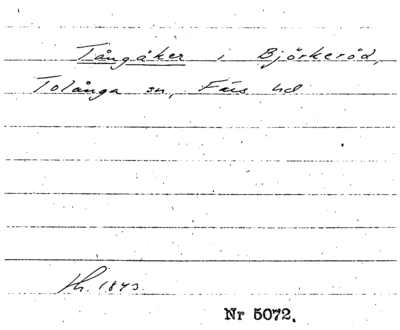 Tångåker i Björkeröd,
Tolånga sn, Färs hd
1843.
Nr 5072.